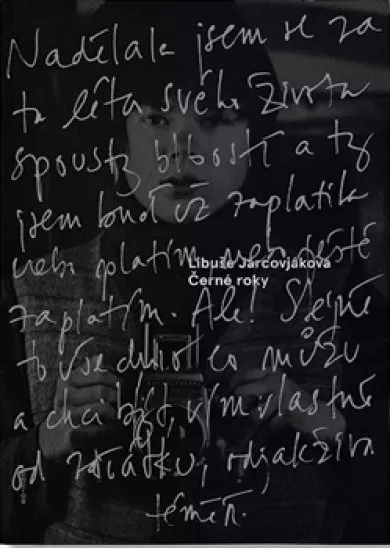 Nadělala jsem se za
ta léta svého života
spousty blbostí a ty
jsem buď už zaplatila
nebo platím, nebo ještě
Libuše Jarcovjáková
Černé roky
zaplatím. Ale! Stejně
to vše co můžu
a chci být, vím vlastně
od začátku, odjakživa
téměř.